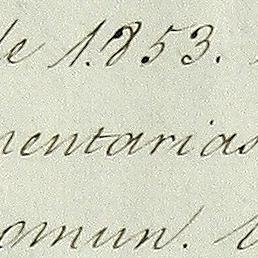 de 1.853.
mentarias
comun.